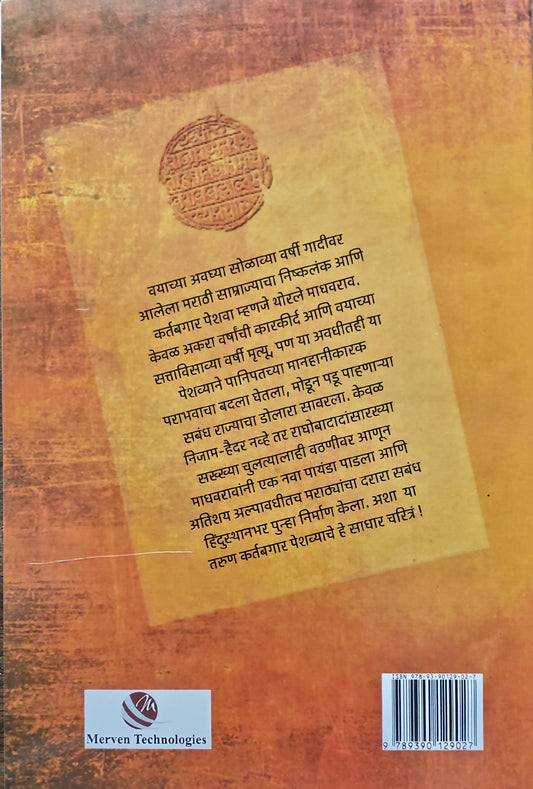 वयाच्या अवघ्या सोळाव्या वर्षी गादीवर
आलेला मराठी साम्राज्याचा निष्कलंक आणि
कर्तबगार पेशवा म्हणजे थोरले माधवराव.
केवळ अकरा वर्षांची कारकीर्द आणि वयाच्या
सत्ताविसाव्या वर्षी मृत्यू, पण या अवधीतही या
पेशव्याने पानिपतच्या मानहानीकारक
पराभवाचा बदला घेतला, मोडून पडू पाहणाऱ्या
सबंध राज्याचा डोलारा सावरला. केवळ
निजाम-हैदर नव्हे तर राघोबादादांसारख्या
सख्ख्या चुलत्यालाही वठणीवर आणून
माधवरावांनी एक नवा पायंडा पाडला आणि
अतिशय अल्पावधीतच मराठ्यांचा दरारा सबंध
हिंदुस्थानभर पुन्हा निर्माण केला. अशा या
तरुण कर्तबगार पेशव्याचे हे साधार चरित्रं !
M
Merven Technologies
ISBN 978-93-90129-02-7
9 789390 129027